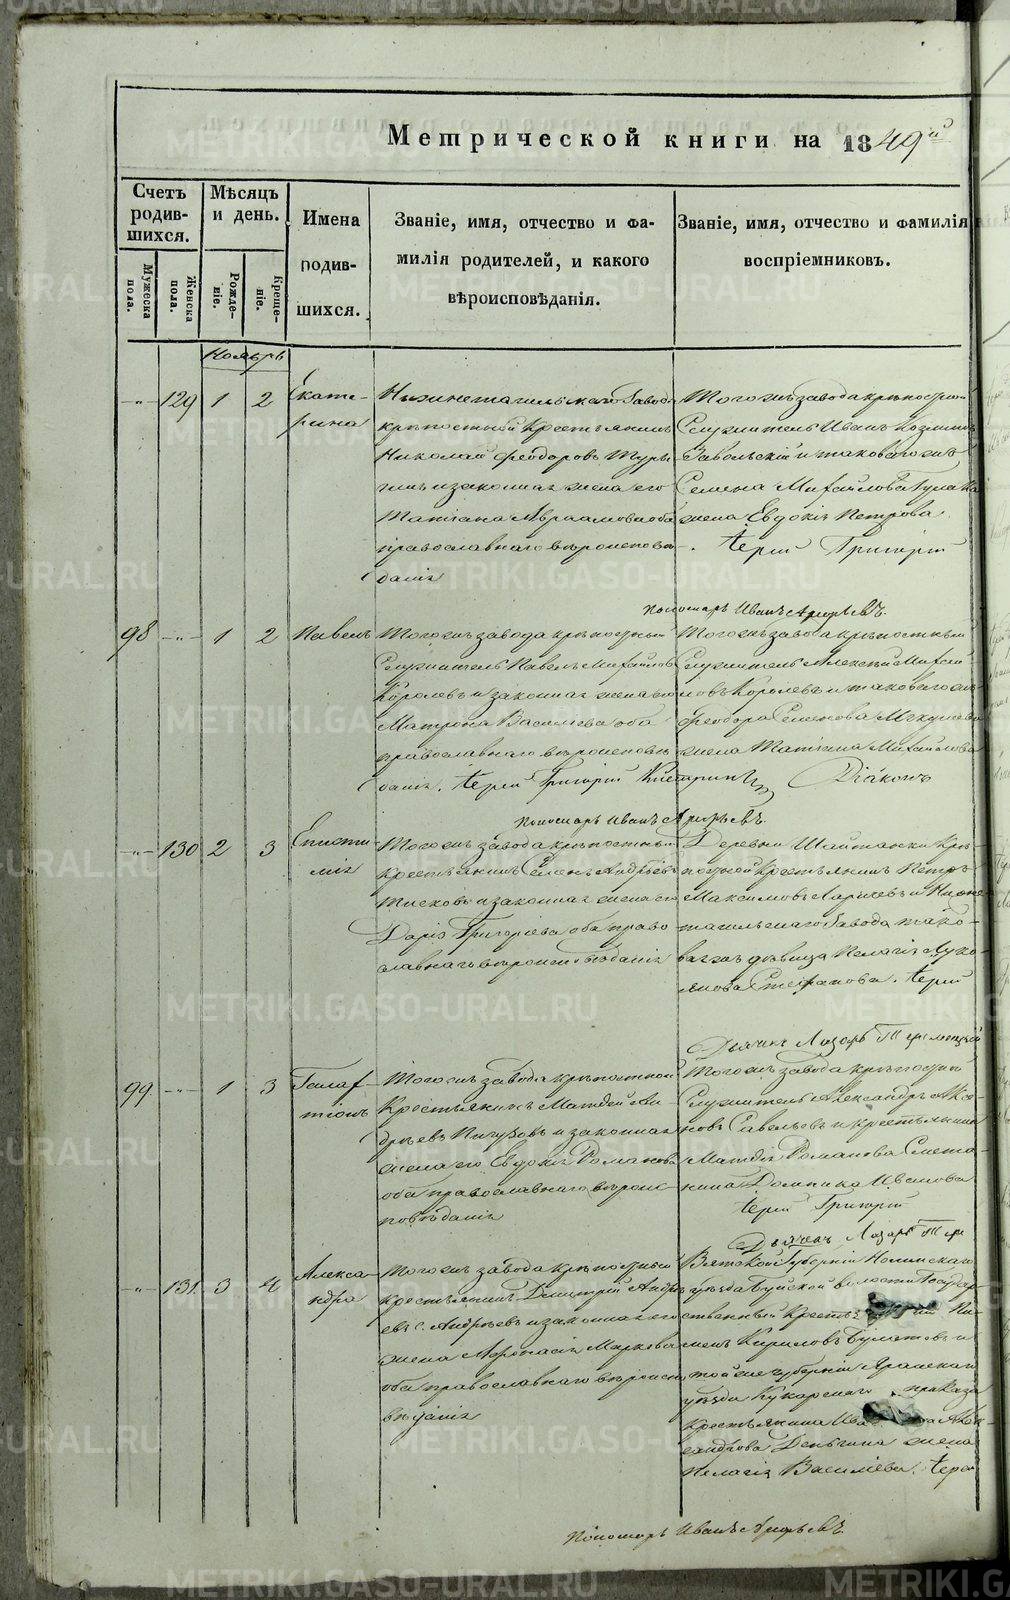 Метрической книги на 1849й
Счетъ родив-шихся.
Мужеска пола.
Женска пола.
Мѣсяцъ и день.
Рожде-ніе.
Креще-ніе.
Имена
родив-
шихся.
Званіе, имя, отчество и фа-
милія родителей, и какого
вѣроисповѣданія.
Званіе, имя, отчество и фамилія
воспріемниковъ.
Ноябрь
-"- 129 1 2
Екате-
рина
Нижнетагильскаго Завода
крѣпостной Крестьянинъ
Николай Феодоровъ
и законная жена его
Татіана Авраамова оба
православнаго вѣроисповѣ-
данія
Тогожъ завода крѣпостной
Служитель Иванъ Козминъ
Завольскій и таковагожъ
Семена Михайлова
жена Евдокія Петрова.
Іерей Григорій
Пономарь Иванъ
98 -"- 1 2
Павелъ
Тогожъ завода крѣпостный
Служитель Павелъ Михайловъ
Королевъ и законная жена его
Матрона Васильева оба
православнаго вѣроисповѣ-
данія. Іерей Григорій
Тогожъ завода крѣпостный
Служитель Алексѣй Михай-
ловъ Королевъ и таковагожъ
Феодора Семенова
жена Татіана Михайлова
Діаконъ
Пономарь Иванъ
-"- 130 2 3
Еписти-
мія
Тогожъ завода крѣпостный
крестьянинъ Семенъ Андреевъ
и законная жена его
Дарія Григоріева оба право-
славнаго вѣроисповѣданія
Деревни Шайтанки Крѣ-
постной Крестьянинъ Петръ
Максимовъ Ларичевъ и Нижне-
тагильскаго Завода тако-
ваяжъ дѣвица Пелагія
Стефанова. Іерей
Дьячекъ Лазарь
99 -"- 1 3
Галак-
тіонъ
Тогожъ завода крѣпостной
Крестьянинъ Матвей Ан-
дреевъ Пичуговъ и законная
жена его Евдокія Романова
оба православнаго вѣроис-
повѣданія
Тогожъ завода крѣпостный
Служитель Александръ
новъ Савельевъ и крестьянина
Матвія Романова Смето-
нина Домника Иванова
Іерей Григорій
Дьячекъ Лазарь
-"- 131 3 4
Алекса-
ндра
Тогожъ завода крѣпостный
крестьянинъ Димитрій Андре-
евъ Андреевъ и законная его
жена Афонасія Маркова
оба православнаго вѣроиспо-
вѣданія
Вятской Губерніи Нолинскаго
уѣзда Буйской волости Государ-
ственный Кресть
Кириловъ и
тойже губерніи Яранскаго
уѣзда Кукарскаго приказа
Крестьянина Ива Алек-
сандрова Деньгина жена
Пелагія Васильева. Іерей
Пономарь Иванъ
METRIKI.GASO-URAL.RU